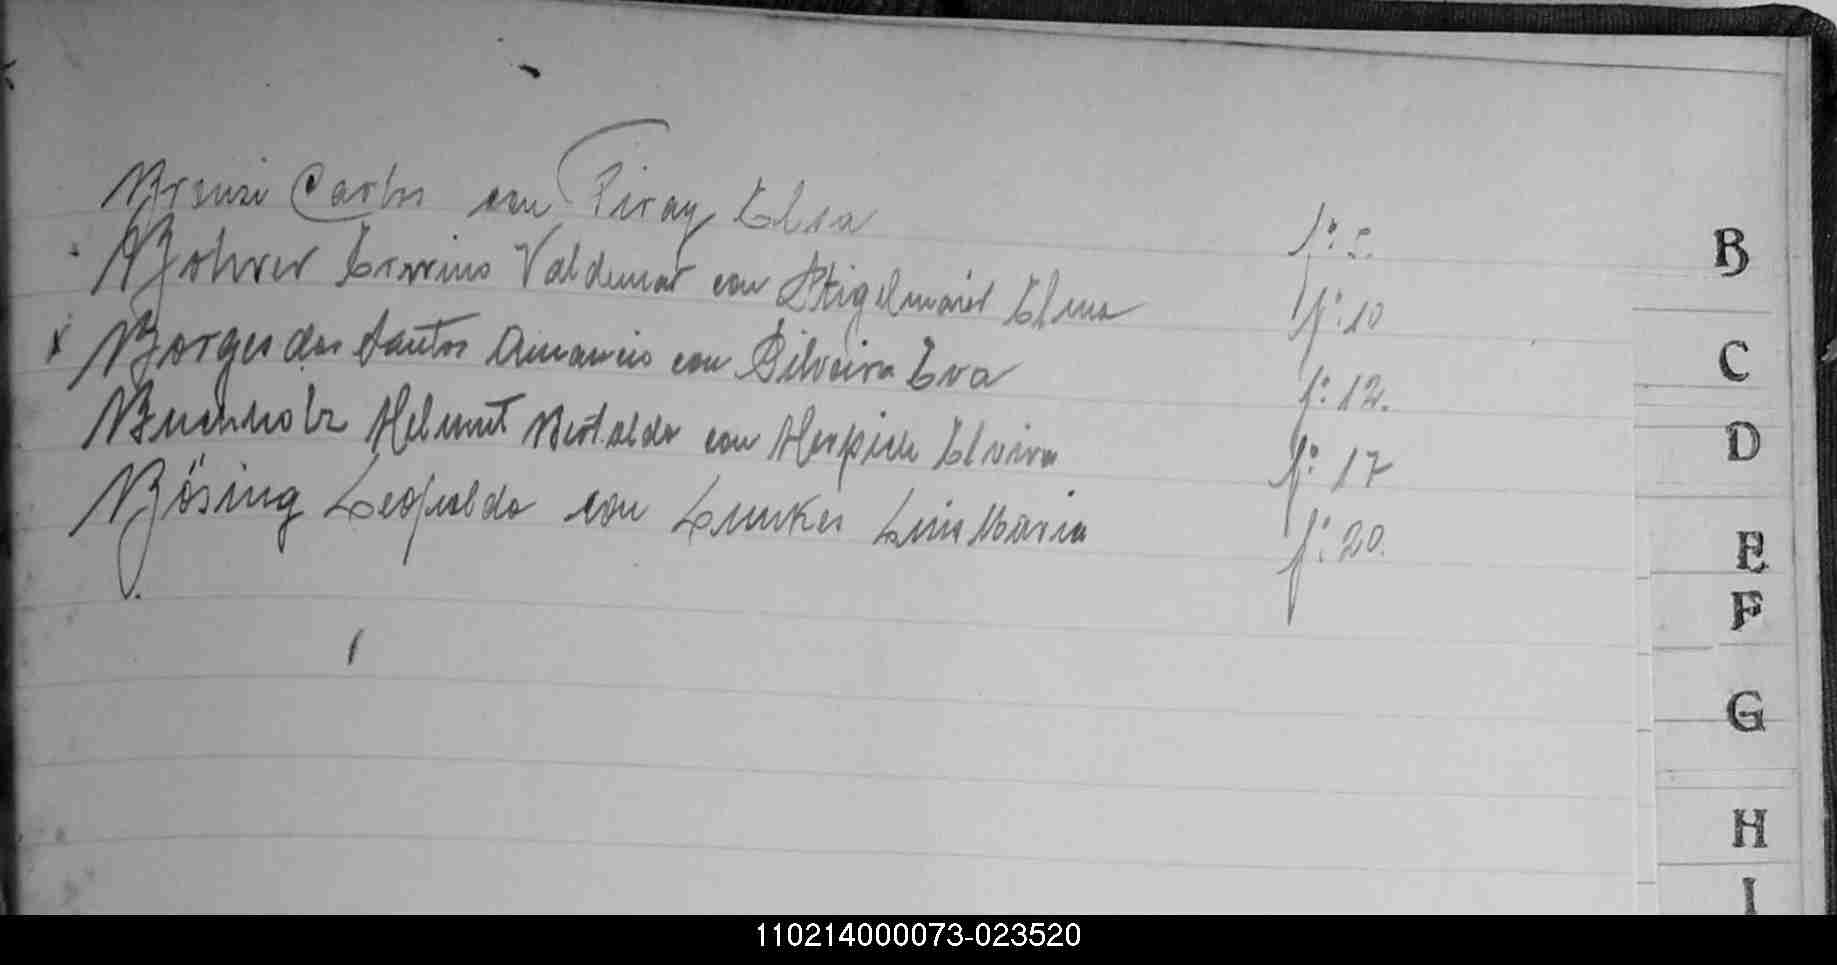 Brensi Carlos con Piray Elsa f: 5.
Bohrer Erwino Valdemar con Stigelmaier Elma f: 10
x Borges dos Santos Amancio con Silveira Eva f: 12.
Buchholz Helmut Bertoldo con Herpich Elvira f: 17
Bösing Leopoldo con Lunkes Luis Maria f: 20.
B
C
D
E
F
G
H
I
110214000073-023520